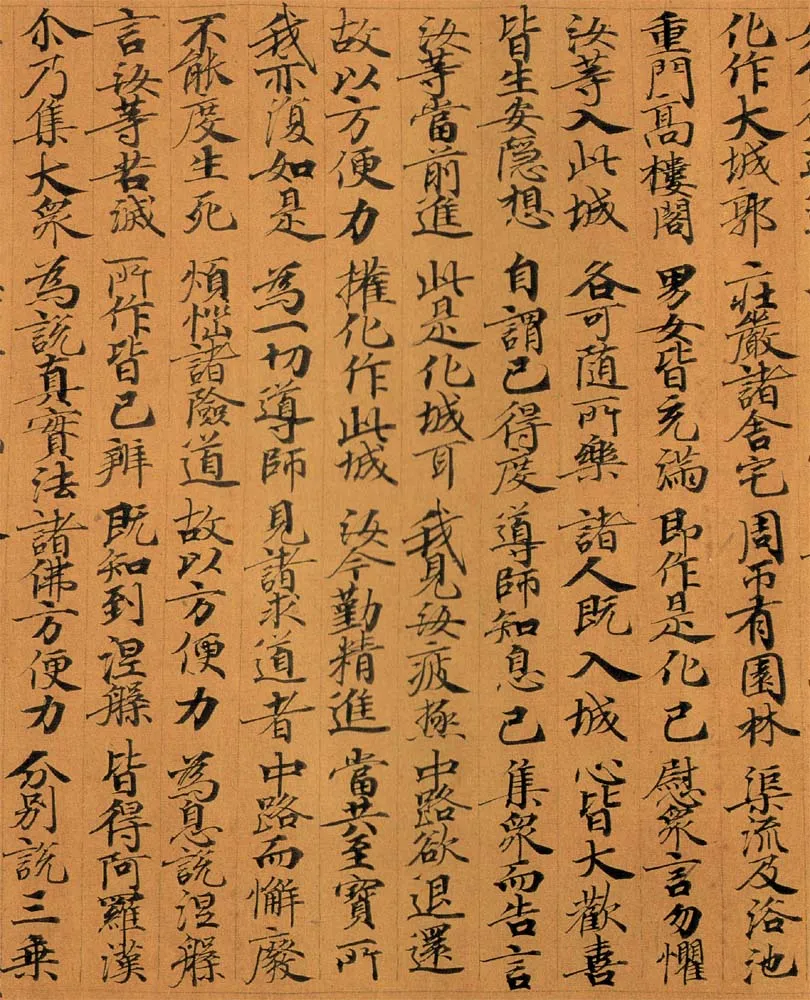 化作大城郭 莊嚴諸舍宅 周帀有園林 渠流及浴池
重門高樓閣 男女皆充滿 即作是化已 慰衆言勿懼
汝等入此城 各可隨所樂 諸人既入城 心皆大歡喜
皆生安隱想 自謂已得度 導師知息已 集衆而告言
汝等當前進 此是化城耳 我見汝疲極 中路欲退還
故以方便力 權化作此城 汝今勤精進 當共至寶所
我亦復如是 為一切導師 見諸求道者 中路而懈廢
不能度生死 煩惱諸險道 故以方便力 為息說涅槃
言汝等苦滅 所作皆已辨 既知到涅槃 皆得阿羅漢
尒乃集大衆 為說真實法 諸佛方便力 分別說三乗